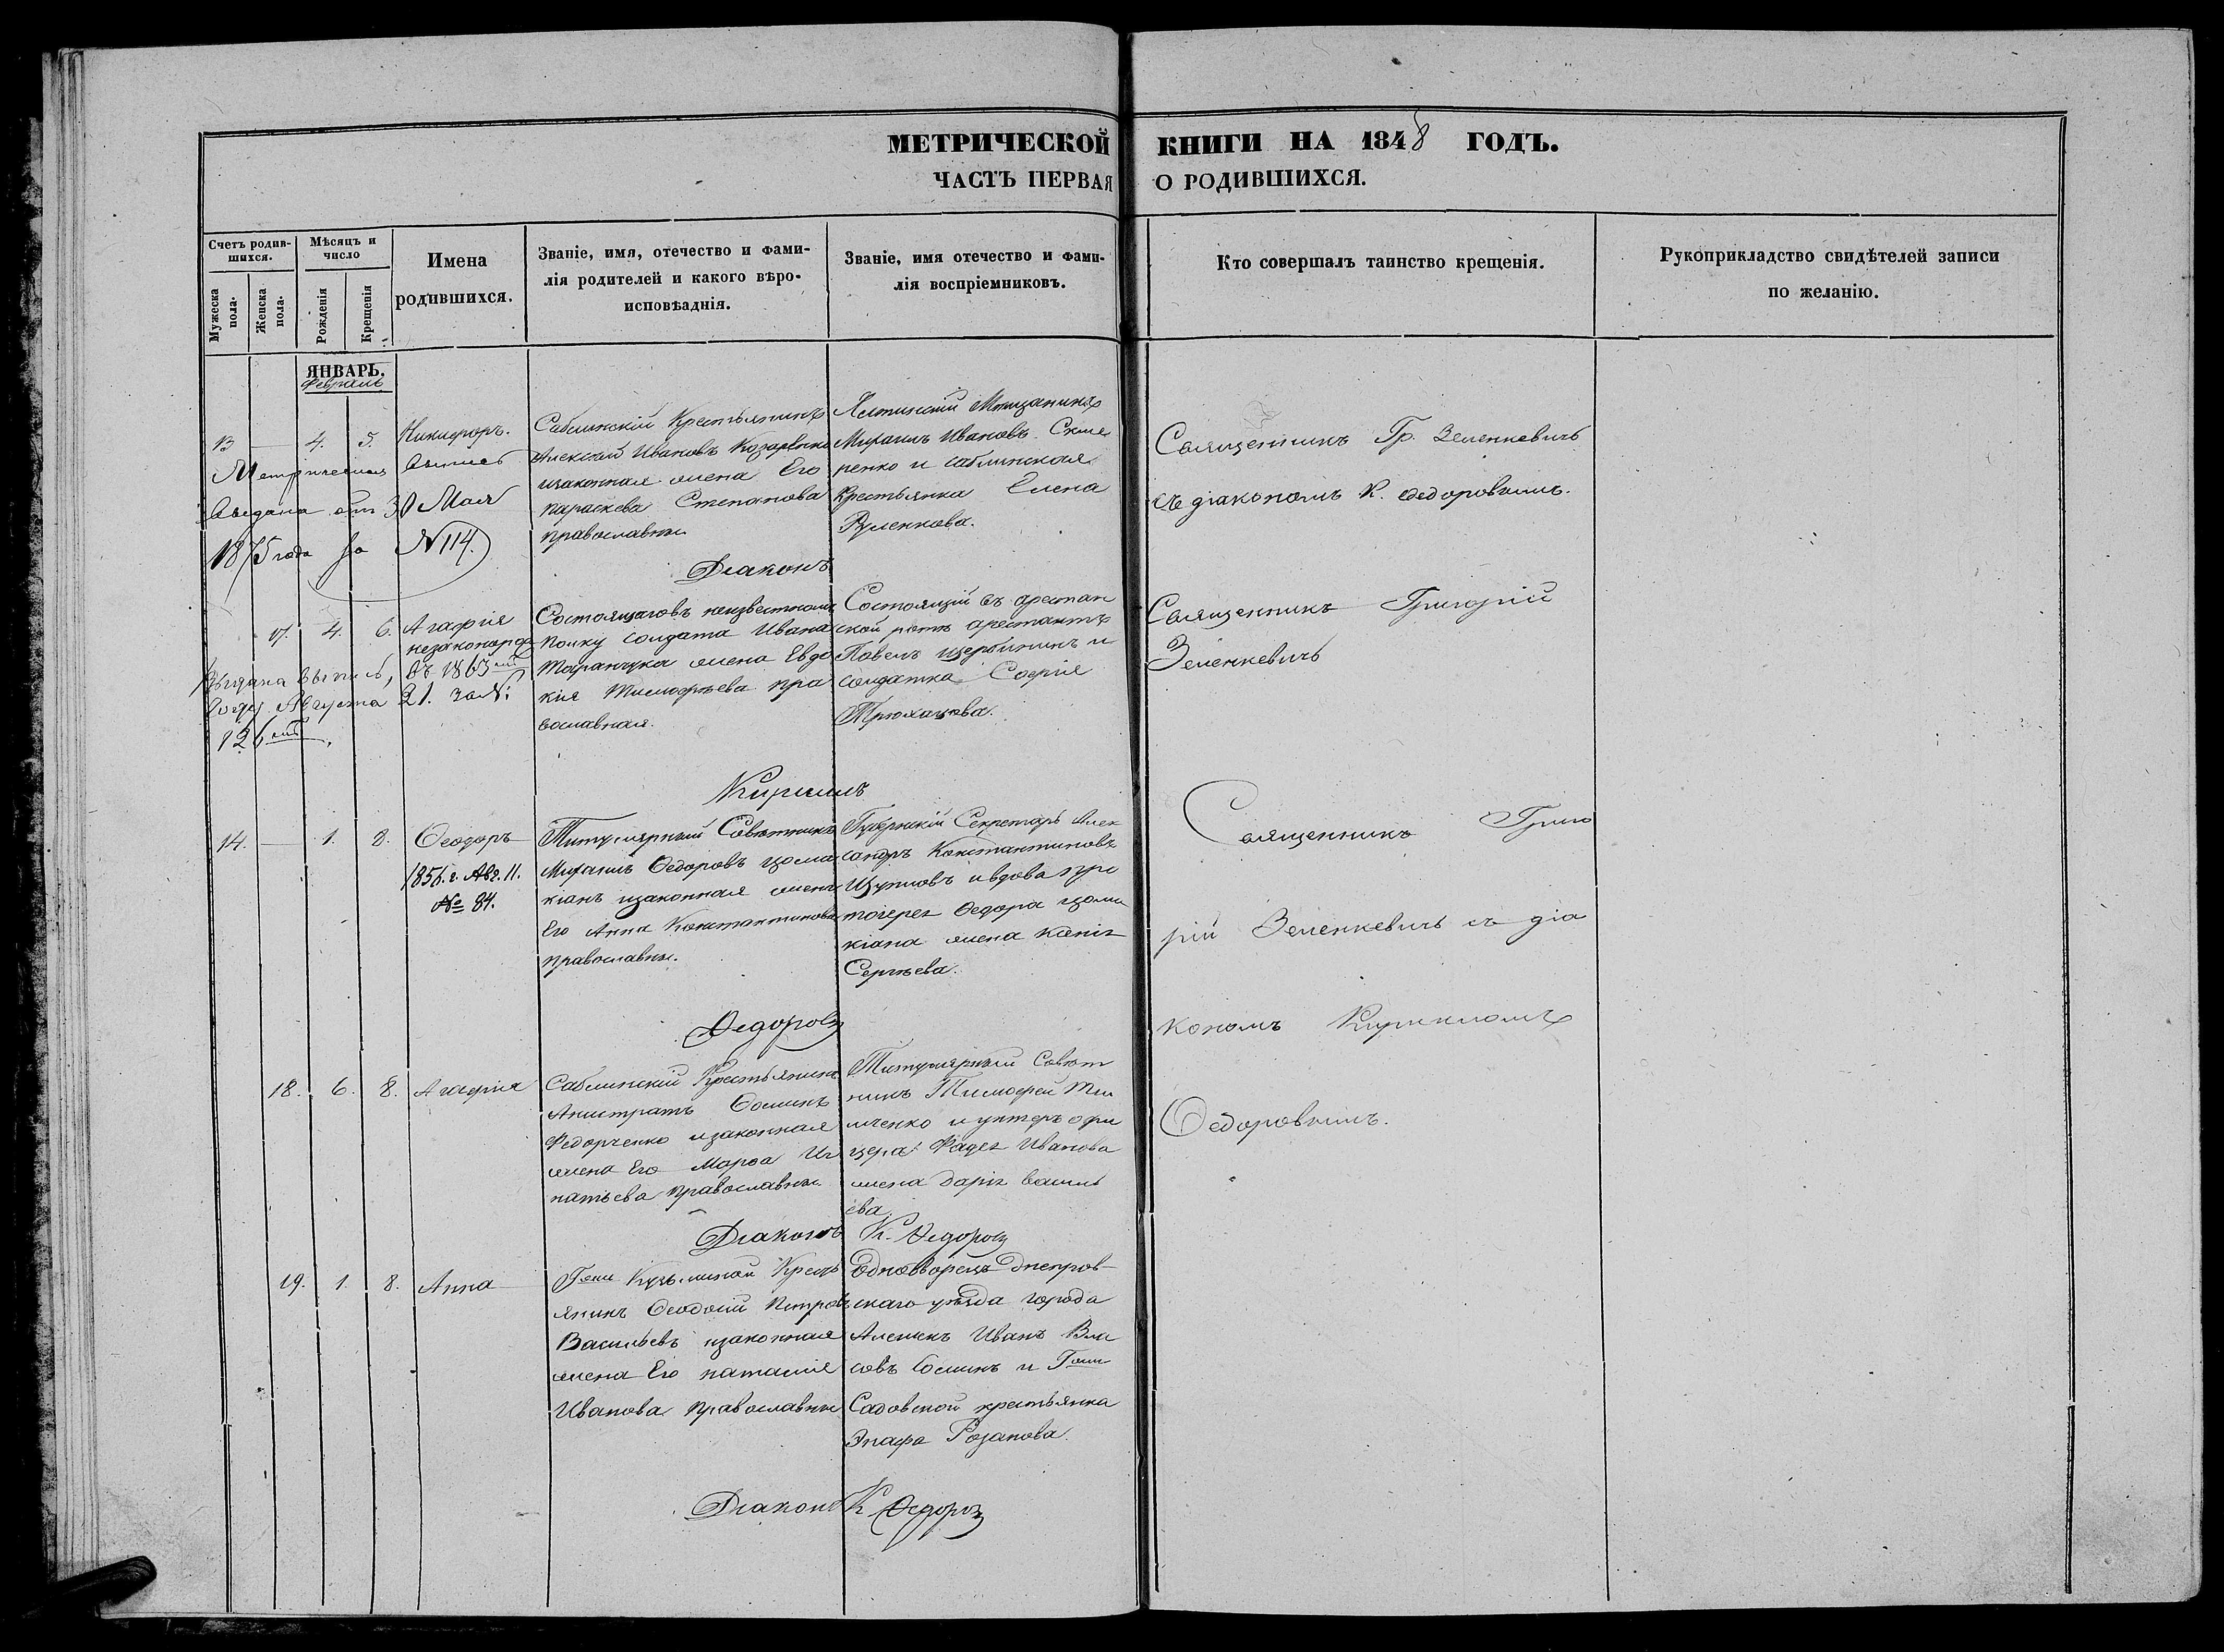 МЕТРИЧЕСКОЙ КНИГИ НА 1848 ГОДЪ.
ЧАСТЬ ПЕРВАЯ О РОДИВШИХСЯ.
Счетъ родив-
шихся.
Мужеска пола.
Женска пола.
Мѣсяцъ и
число
Рожденія
Крещенія
Имена
родившихся.
Званіе, имя, отечество и фами-
лія родителей и какого вѣро-
исповѣаднія.
Званіе, имя отечество и фами-
лія воспріемниковъ.
Кто совершалъ таинство крещенія.
Рукоприкладство свидѣтелей записи
по желанію.
ЯНВАРЬ.
Февраль
13 — 4. 5. Никифоръ.
Метрическая выпись
выдана отъ 30 Мая
1875 года за N 114.
Саблинский Крестьянинъ
Алексѣй Ивановъ
изаконная жена Его
параскева Степанова
православны
Ялтинский Мещанинъ
Михаилъ Ивановъ Скля
ренко и саблинская
Крестьянка Елена
Діаконъ
Священникъ Гр. Зеленкевичъ
съ діакономъ К. Федоровымъ.
17. 4. 6. Агафія
незаконорож
Выдана выпись, въ 1863мъ
году Августа 21. за №:
126мъ.
Состоящаговъ неизвестномъ
полку солдата Ивана
Таранчука жена Евдо
кія Тимофѣева пра
вославная.
Состоящій въ арестан
ской ротѣ арестантъ
Павелъ Щербининъ и
солдатка Софія
Священникъ Григорій
Зеленкевичъ
Кириллъ
14. — 1. 8. Ѳеодоръ
1856. г. Авг. 11.
№ 84.
Титулярный Совѣтникъ
Михаилъ Ѳедоровъ цома
кіанъ изаконная жена
Его Анна Константинова
православны.
Губернскій Секретарь Алек
сандръ Константиновъ
и вдова про
тоіерея Ѳедора цома
кіана жена Ксенія
Сергѣева.
Священникъ Григо
рій Зеленкевичъ съ діа
кономъ Кирилломъ
Ѳедоровымъ.
Ѳедоровъ
18. 6. 8. Агафія
Саблинский Крестьянинъ
Ѳоминъ
Федорченко изаконная
жена Его Марѳа Иг
натьева православны
Титулярный Совѣт
никъ Тимофей Ти
мченко и унтеръ офи
цера Фадея Иванова
жена Дарія василь
ева
Діаконъ К. Ѳедоровъ
19. 1. 8. Анна
Крест
янинъ Ѳеодосій Петровъ
Васильевъ изаконная
жена Его наталія
Иванова православны
Однодворецъ Днепров
скаго уѣзда города
Алешекъ Иванъ Вла
совъ Ѳоминъ и
Садовской крестьянка
Розанова.
Діаконъ К Ѳедоровъ